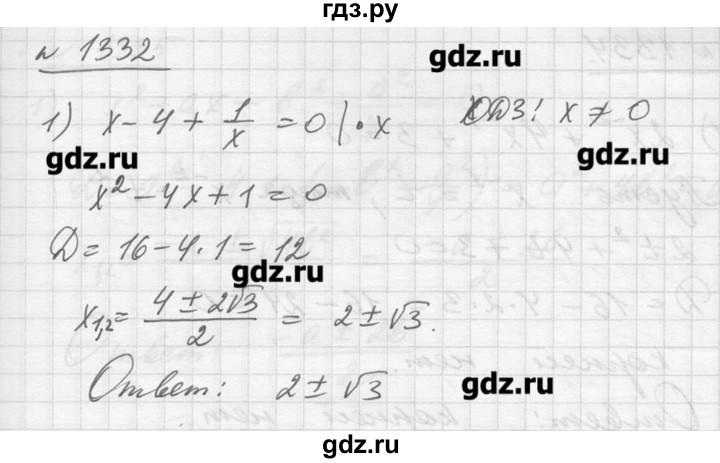 гдз.ру
№ 1332
gdz.ru
1) x - 4 + 1/x = 0 | · x ОДЗ! x ≠ 0
gdz.ru
gdz.ru
x² - 4x + 1 = 0
D = 16 - 4 · 1 = 12
gdz.ru
x₁,₂ = (4 ± 2√3)/2 = 2 ± √3.
Ответ: 2 ± √3
gdz.ru
gdz.ru